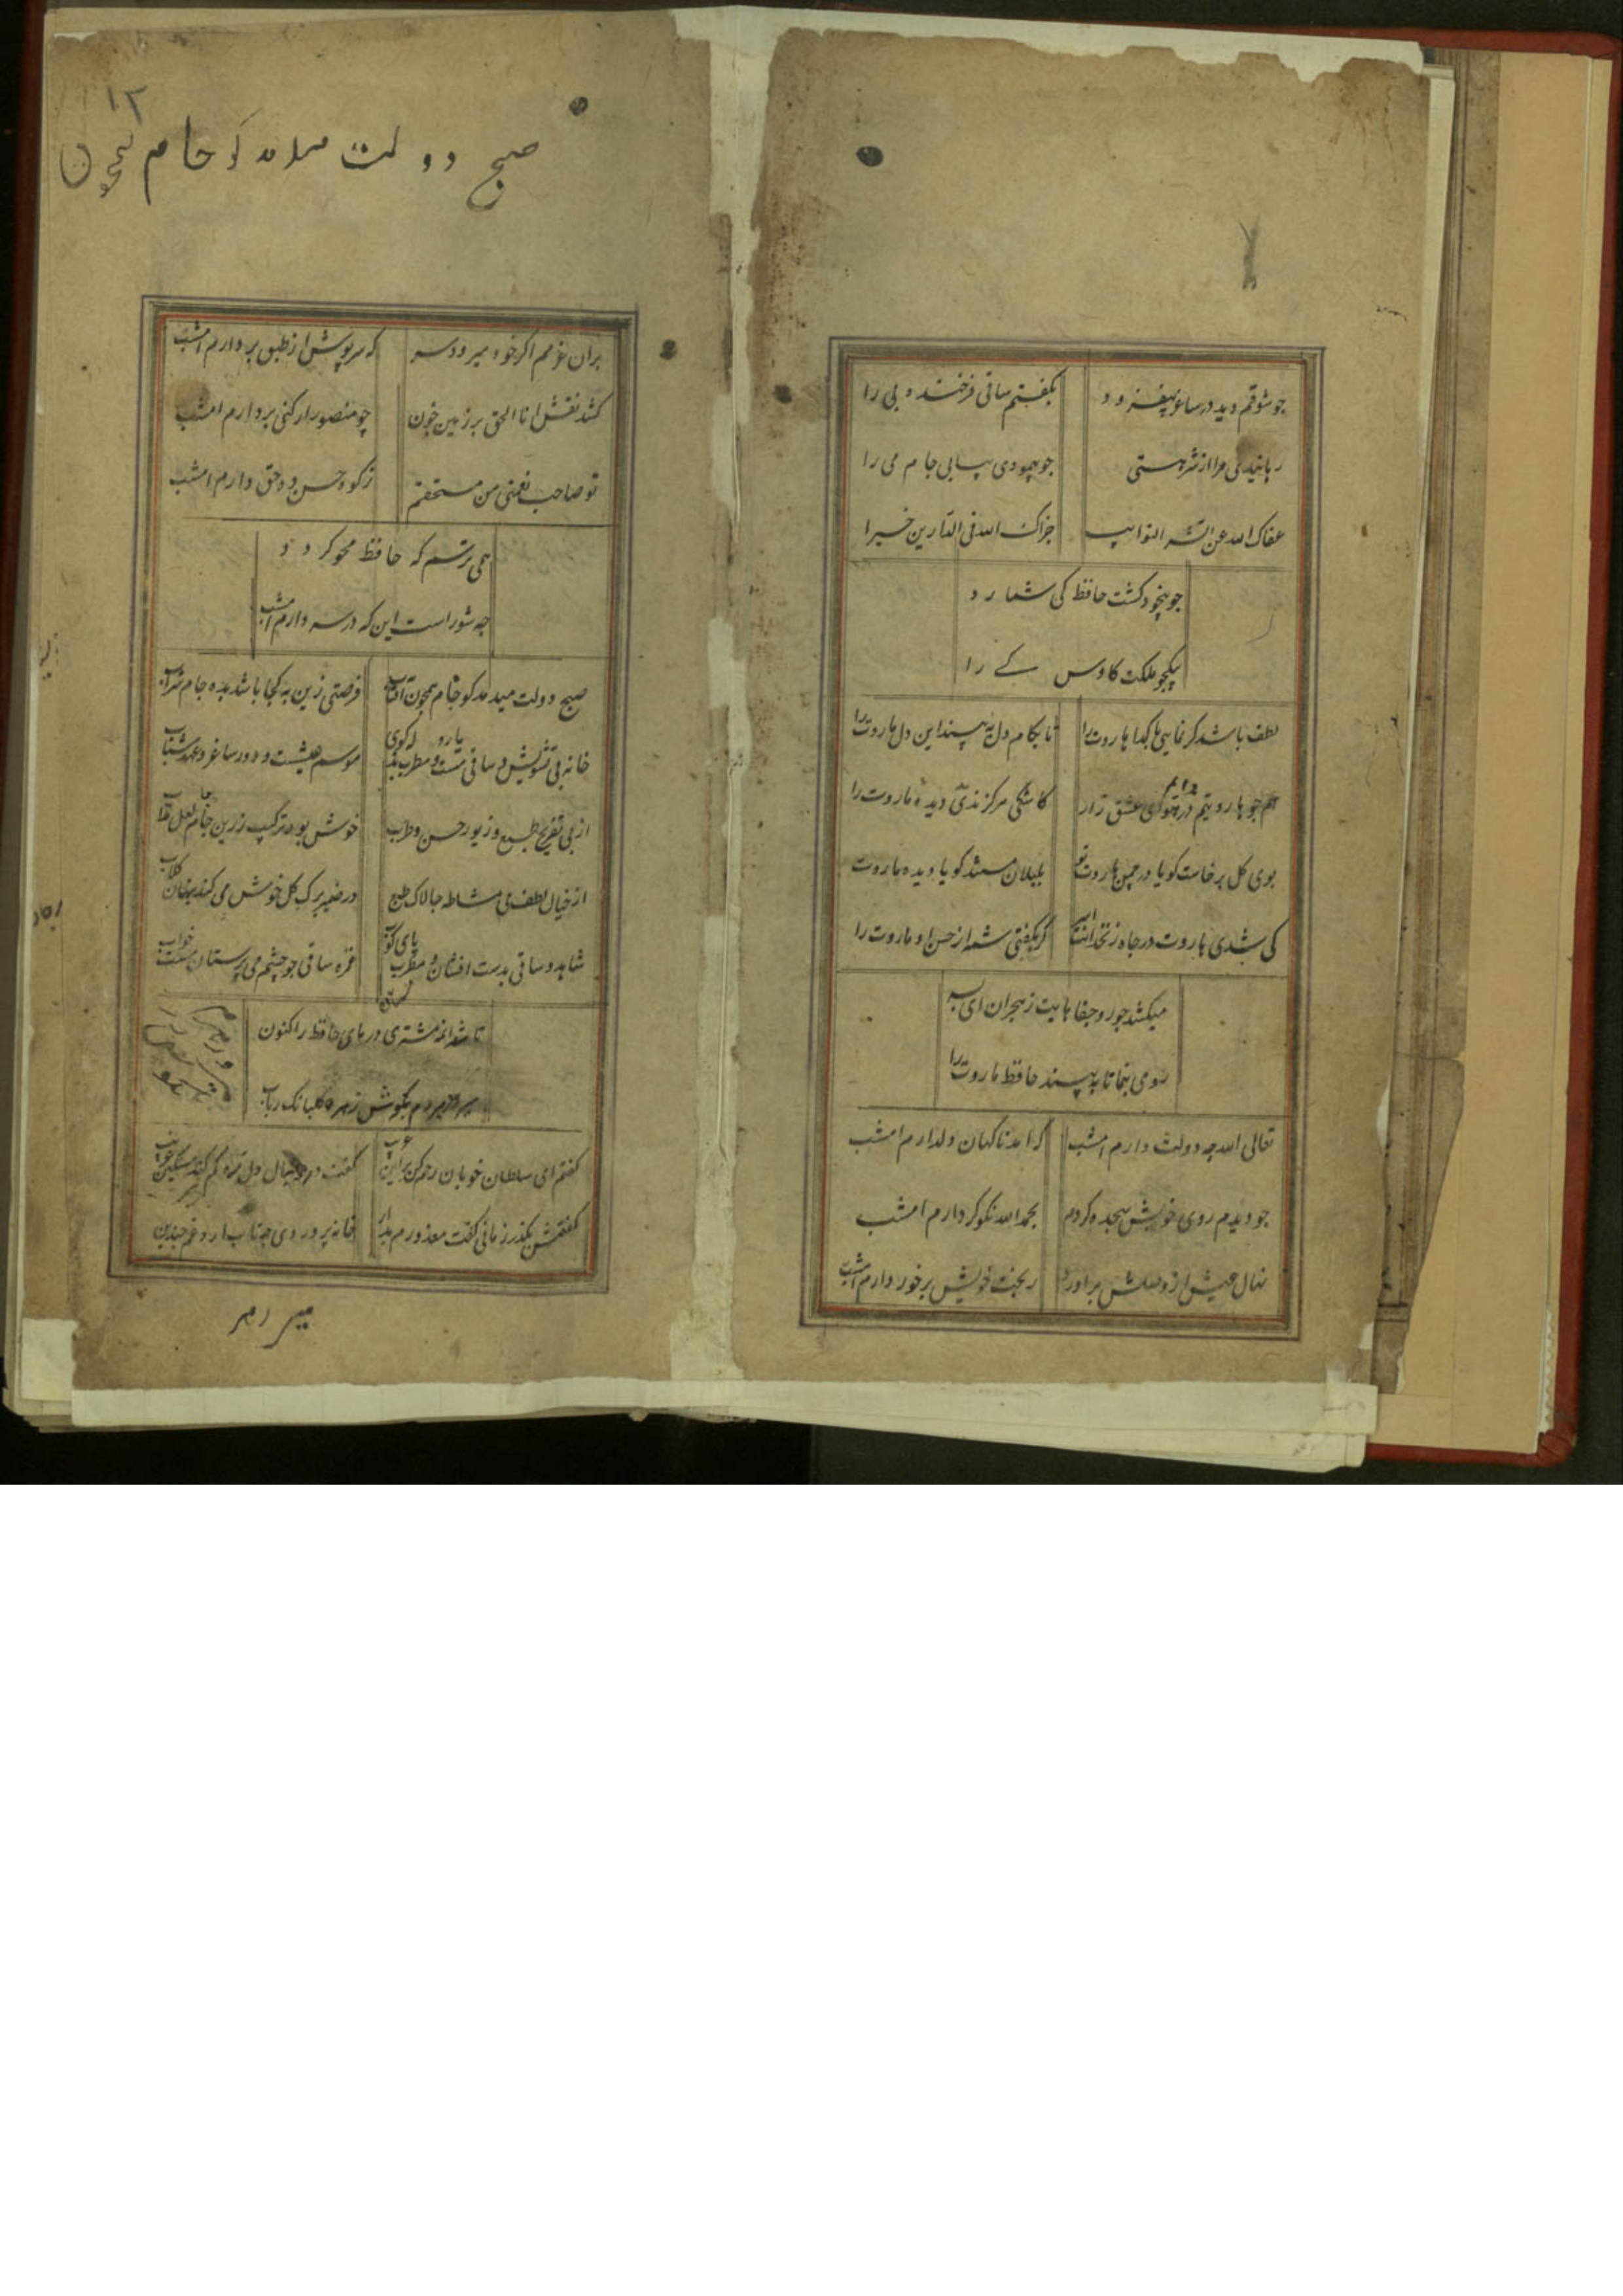 جو شوقم دید در ساغر بیفزود بکفتم ساقی فرخنده پی را
رهانیدی مرا از شر هستی جو پیمودی پیاپی جام می را
عفاک الله عن شر النوایب جزاک الله فی الدارین خیرا
جو بیخود کشت حافظ کی شمارد
بیکجو ملکت کاوس کے را
لطف باشد کر نپاشی کداها روت را تا بکام دل به بیند این دل ما روت را
هم جو هاروتیم دایم در هوای عشق زار کاشکی هرکز ندیدی دیده ماروت را
بوی کل برخاست کویا در چمن ها روت تو بلبلان مستند کویا دیده ماروت
کی شدی هاروت در جاه زنخدانت اسیر کر بکفتی شمه از حسن او ماروت را
میکشد جور و جفاهایت ز هجران ای
روی بنما تا به بیند حافظ ما روت را
تعالی الله چه دولت دارم امشب که امد ناکهان دلدارم امشب
جو دیدم روی خوبش سجده کردم بحمد الله نکو کردارم امشب
نهال عیش از وصلش براورد ز بخت خویش برخوردارم امشب
۱۲
صبح دولت میدمد کو جام همچون
بران عزمم اکر خود میرود سر که سرپوش از طبق بردارم امشب
کشد نقش انا الحق بر زمین خون چو منصور ار کنی بردارم امشب
تو صاحب نعمتی من مستحقم زکوه حسن ده حق دارم امشب
همی ترسم که حافظ محو کردد
چه شور است این که در سر دارم امشب
صبح دولت میدمد کو جام همچون آفتاب فرصتی زین به کجا باشد بده جام شراب
خانه بی تشویش و ساقی یار و مطرب بذله کوی موسم عیشست و دور ساغر و عهد شباب
از پی تفریح طبع و زیور حسن و طرب خوش بود ترکیب زرین جام با لعل مذاب
از خیال لطف می مشاطه جالاک طبع در ضمیر برک کل خوش می کند پنهان کلاب
شاهد و ساقی بدست افشان و مطرب پای کوب غمزه ساقی جو چشم می پرستان مست خواب
تا شد انمه مشتری درهای حافظ را کنون
میرسد هر دم بکوش زهره کلبانک رباب
کفتم ای سلطان خوبان رحم کن بر این غریب کفت در دنبال دل ره کم کند مسکین غریب
کفتمش بکذر زمانی کفت معذورم بدار خانه پروردی چه تاب ارد غم چندین